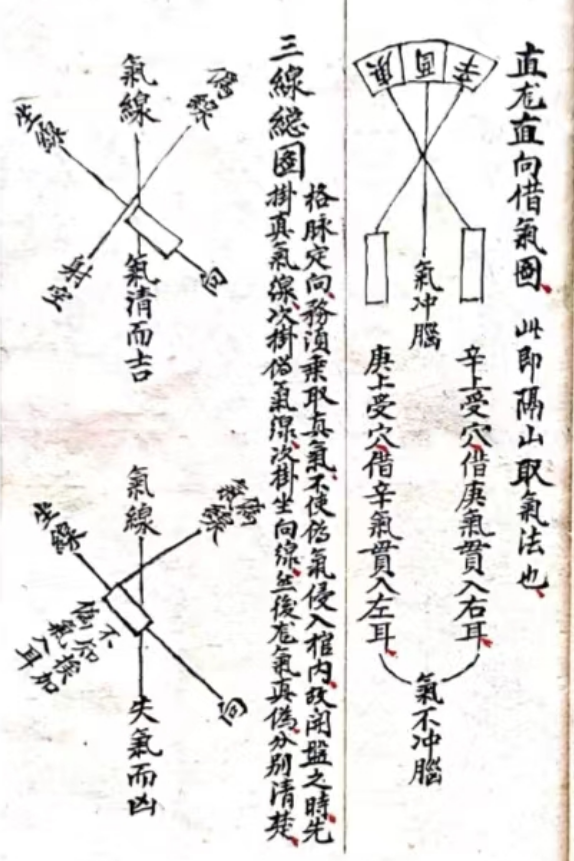 直龙直向借氣圖 此即隔山取氣法也
辛
酉
庚
氣冲腦
辛上受穴借庚氣貫入右耳
庚上受穴借辛氣貫入左耳
氣不冲腦
三線總圖
格脉定向務須乘取真氣不使偽氣侵入棺內故開盤之時先
掛真氣線次掛偽氣線次掛坐向線然後龙氣真偽分別清楚
偽線
氣線
坐線
射空
向
氣清而吉
氣線
坐線
偽氣入耳
向
失氣而凶